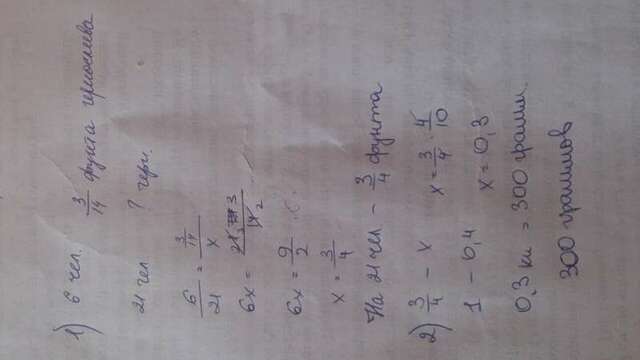 1) 6 чел. 3/14 фунта чернослива
21 чел ? черн.
6/21 = 3/14/x
6x = 21·3/14 2
6x = 9/2
x = 3/4
На 21 чел. - 3/4 фунта
2) 3/4 - x x = 3/4 · 4/10
1 - 0,4 x = 0,3
0,3 кг = 300 грамм.
300 граммов